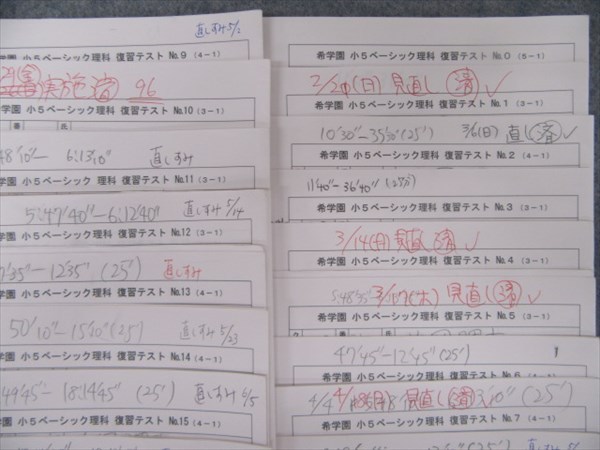 直しすみ 5/2
希学園 小5ベーシック理科 復習テスト No.9 (4-1)
実施 済 96
希学園 小5ベーシック理科 復習テスト No.10 (3-1)
番 氏
48'10"- 6:13'10" 直しすみ
希学園 小5ベーシック 理科 復習テスト No.11 (3-1)
5:47'40"-6:12'40" 直しすみ 5/14
希学園 小5ベーシック理科 復習テスト No.12 (3-1)
7'35"-12'35" (25') 直しすみ
希学園 小5ベーシック理科 復習テスト No.13 (4-1)
50'10"-15'10" (25') 直しすみ 5/23
希学園 小5ベーシック理科 復習テスト No.14 (4-1)
49'45"- 18:14'45" (25') 直しすみ 6/5
希学園 小5ベーシック理科 復習テスト No.15 (4-1)
希学園 小5ベーシック理科 復習テスト No.0 (5-1)
見直し 済 ✓
希学園 小5ベーシック理科 復習テスト No.1 (3-1)
10'30"-35'30" (25') 3/6(日) 直し 済 ✓
希学園 小5ベーシック理科 復習テスト No.2 (4-1)
11'40"-36'40"
希学園 小5ベーシック理科 復習テスト No.3 (3-1)
3/14(月) 見直し 済 ✓
希学園 小5ベーシック理科 復習テスト No.4 (3-1)
5:48'35" 3/17(木) 見直し 済 ✓
希学園 小5ベーシック理科 復習テスト No.5 (3-1)
47'45"-12'45" (25')
希学園 小5ベーシック理科 復習テスト No.6 (4-1)
4/4 見直し 済 (25')
希学園 小5ベーシック理科 復習テスト No.7 (4-1)